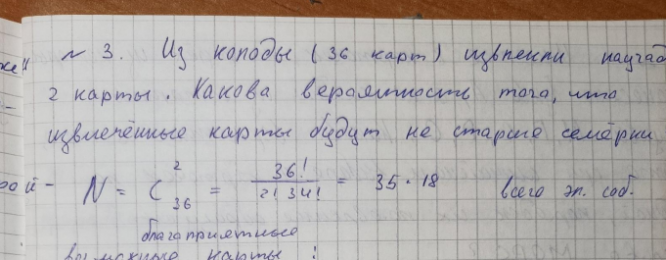 № 3. Из колоды (36 карт) извлекли наугад
2 карты. Какова вероятность того, что
извлечённые карты будут не старше семёрки
N = C²₃₆ = 36!/2!34! = 35·18 всего эл. соб.
благоприятные
возможные карты :